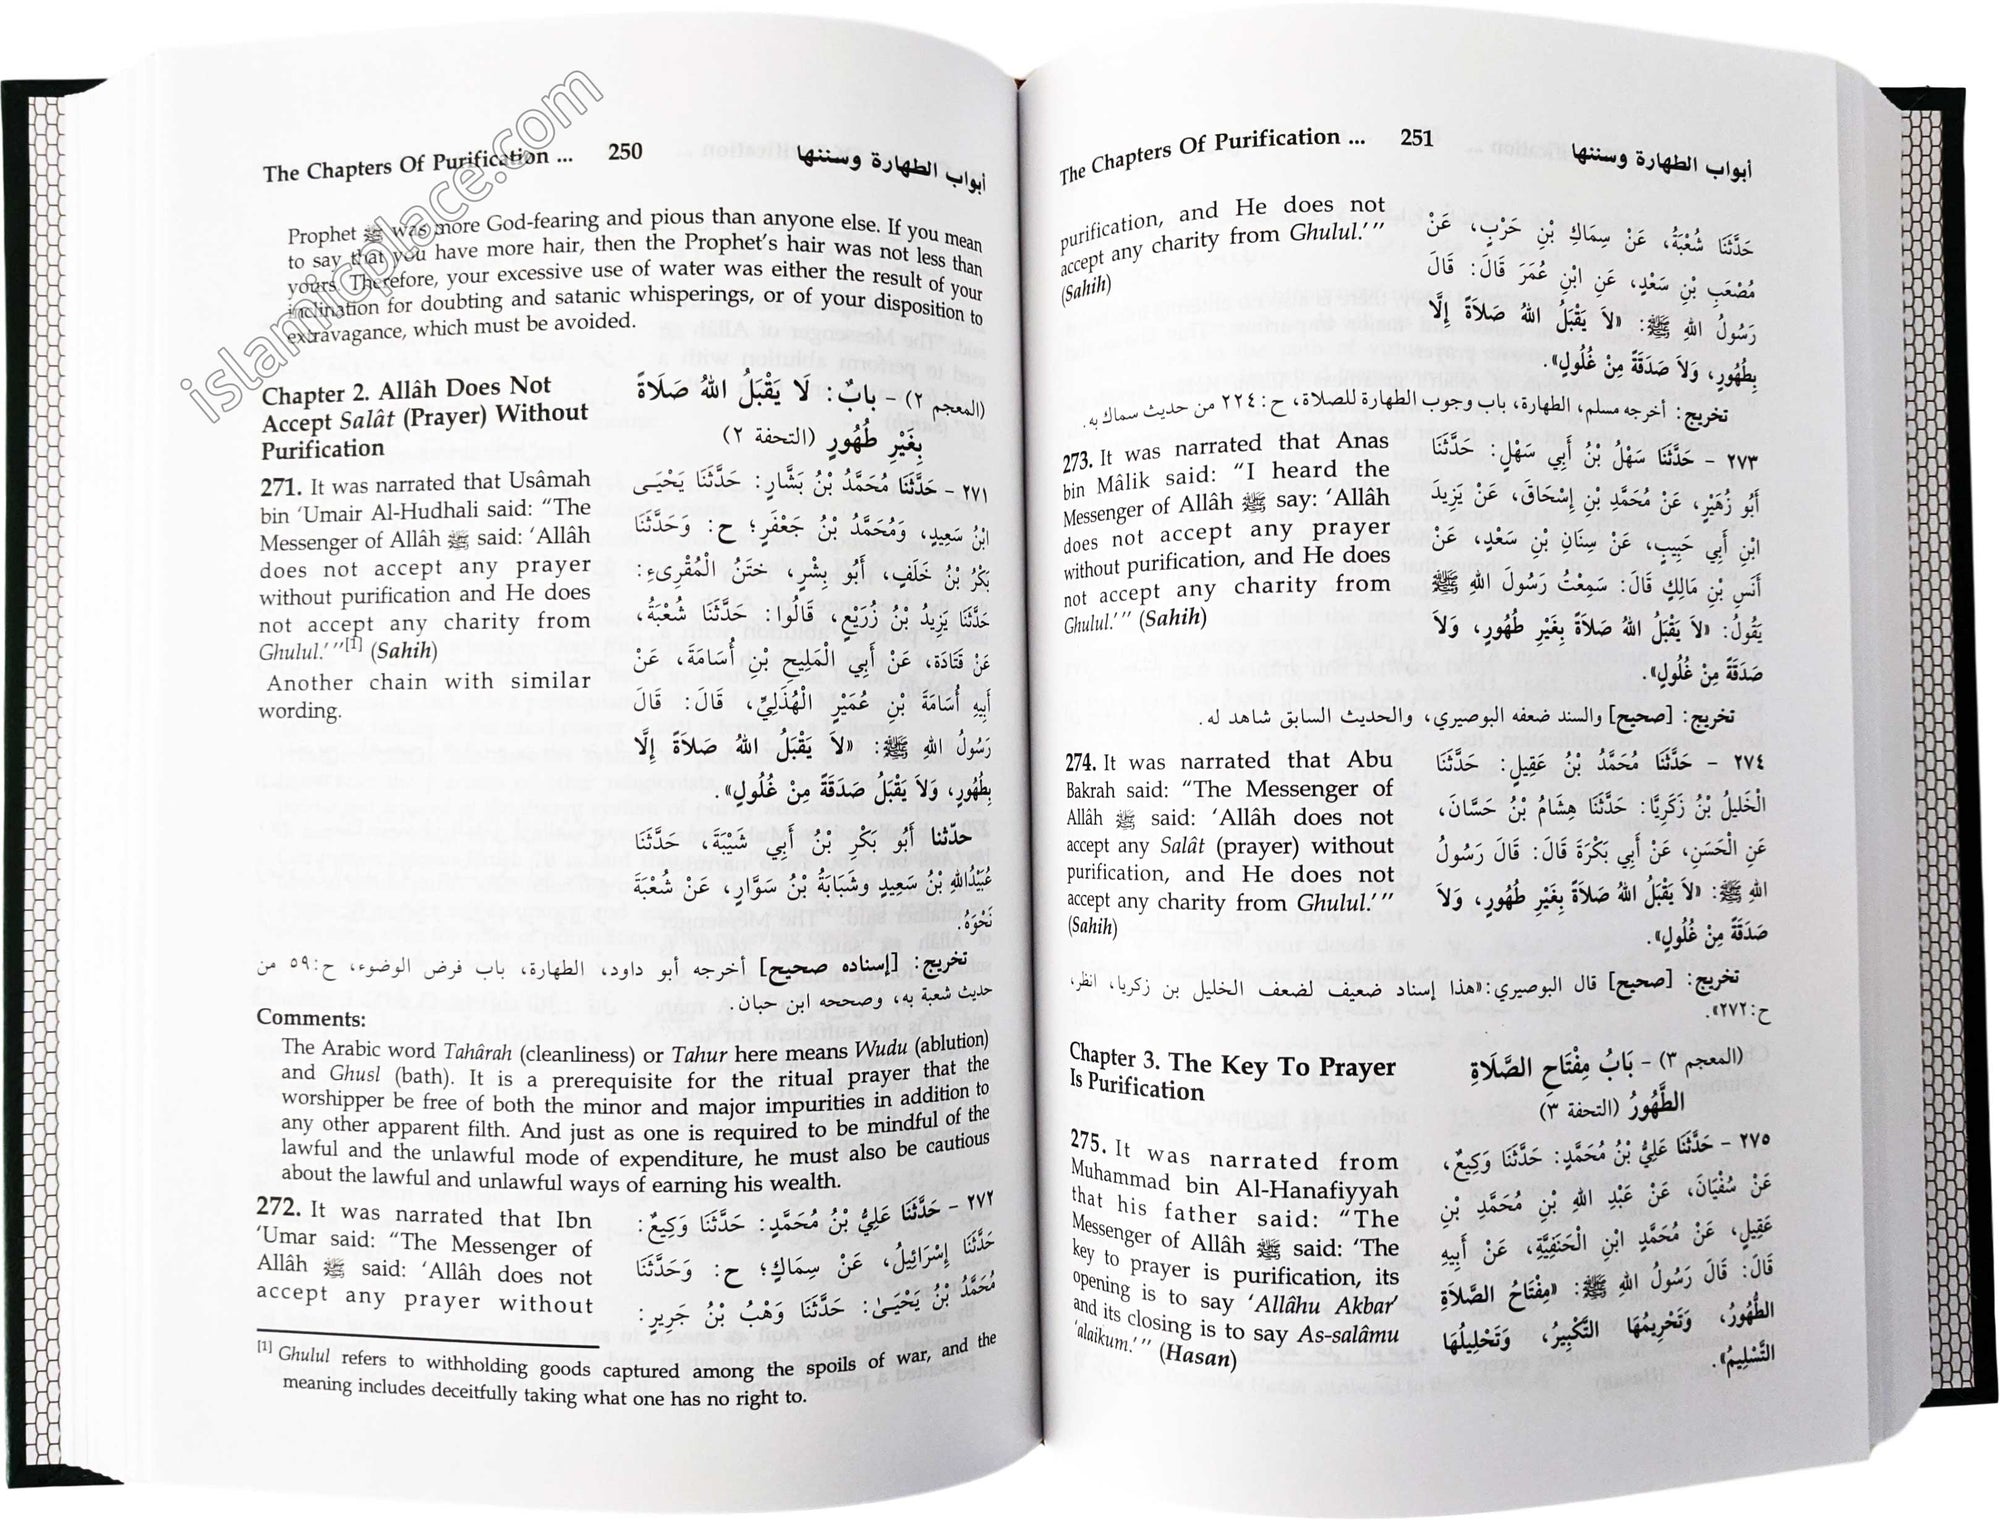 islamicplace.com
The Chapters Of Purification ... 250 أبواب الطهارة وسننها
Prophet ﷺ was more God-fearing and pious than anyone else. If you mean
to say that you have more hair, then the Prophet's hair was not less than
yours. Therefore, your excessive use of water was either the result of your
inclination for doubting and satanic whisperings, or of your disposition to
extravagance, which must be avoided.
Chapter 2. Allâh Does Not
Accept Salât (Prayer) Without
Purification
(المعجم ٢) - بابٌ: لَا يَقْبَلُ اللهُ صَلَاةً
بِغَيْرِ طُهُورٍ (التحفة ٢)
271. It was narrated that Usâmah
bin 'Umair Al-Hudhali said: "The
Messenger of Allâh ﷺ said: 'Allâh
does not accept any prayer
without purification and He does
not accept any charity from
Ghulul.'"[1] (Sahih)
Another chain with similar
wording.
٢٧١ - حَدَّثَنَا مُحَمَّدُ بْنُ بَشَّارٍ: حَدَّثَنَا يَحْيَـى
ابْنُ سَعِيدٍ، وَمُحَمَّدُ بْنُ جَعْفَرٍ؛ ح: وَحَدَّثَنَا
بَكْرُ بْنُ خَلَفٍ، أَبُو بِشْرٍ، خَتَنُ الْمُقْرِىءِ:
حَدَّثَنَا يَزِيدُ بْنُ زُرَيْعٍ، قَالُوا: حَدَّثَنَا شُعْبَةُ،
عَنْ قَتَادَةَ، عَنْ أَبِي الْمَلِيحِ بْنِ أُسَامَةَ، عَنْ
أَبِيهِ أُسَامَةَ بْنِ عُمَيْرٍ الْهُذَلِيِّ، قَالَ: قَالَ
رَسُولُ اللهِ ﷺ: «لاَ يَقْبَلُ اللهُ صَلاَةً إِلَّا
بِطُهُورٍ، وَلاَ يَقْبَلُ صَدَقَةً مِنْ غُلُولٍ».
حدّثنا أَبُو بَكْرِ بْنُ أَبِي شَيْبَةَ، حَدَّثَنَا
عُبَيْدُاللهِ بْنُ سَعِيدٍ وشَبَابَةُ بْنُ سَوَّارٍ، عَنْ شُعْبَةَ
نَحْوَهُ.
تخريج: [إسناده صحيح] أخرجه أبو داود، الطهارة، باب فرض الوضوء، ح:٥٩ من
حديث شعبة به، وصححه ابن حبان.
Comments:
The Arabic word Tahârah (cleanliness) or Tahur here means Wudu (ablution)
and Ghusl (bath). It is a prerequisite for the ritual prayer that the
worshipper be free of both the minor and major impurities in addition to
any other apparent filth. And just as one is required to be mindful of the
lawful and the unlawful mode of expenditure, he must also be cautious
about the lawful and unlawful ways of earning his wealth.
272. It was narrated that Ibn
'Umar said: "The Messenger of
Allâh ﷺ said: 'Allâh does not
accept any prayer without
٢٧٢ - حَدَّثَنَا عَلِيُّ بْنُ مُحَمَّدٍ: حَدَّثَنَا وَكِيعٌ:
حَدَّثَنَا إِسْرَائِيلُ، عَنْ سِمَاكٍ؛ ح: وَحَدَّثَنَا
مُحَمَّدُ بْنُ يَحْيَـىٰ: حَدَّثَنَا وَهْبُ بْنُ جَرِيرٍ:
[1] Ghulul refers to withholding goods captured among the spoils of war, and the
meaning includes deceitfully taking what one has no right to.
The Chapters Of Purification ... 251 أبواب الطهارة وسننها
purification, and He does not
accept any charity from Ghulul.'"
(Sahih)
حَدَّثَنَا شُعْبَةُ، عَنْ سِمَاكِ بْنِ حَرْبٍ، عَنْ
مُصْعَبِ بْنِ سَعْدٍ، عَنِ ابْنِ عُمَرَ قَالَ: قَالَ
رَسُولُ اللهِ ﷺ: «لاَ يَقْبَلُ اللهُ صَلاَةً إِلَّا
بِطُهُورٍ، وَلاَ صَدَقَةً مِنْ غُلُولٍ».
تخريج: أخرجه مسلم، الطهارة، باب وجوب الطهارة للصلاة، ح:٢٢٤ من حديث سماك به.
273. It was narrated that Anas
bin Mâlik said: "I heard the
Messenger of Allâh ﷺ say: 'Allâh
does not accept any prayer
without purification, and He does
not accept any charity from
Ghulul.'" (Sahih)
٢٧٣ - حَدَّثَنَا سَهْلُ بْنُ أَبِي سَهْلٍ: حَدَّثَنَا
أَبُو زُهَيْرٍ، عَنْ مُحَمَّدِ بْنِ إِسْحَاقَ، عَنْ يَزِيدَ
ابْنِ أَبِي حَبِيبٍ، عَنْ سِنَانِ بْنِ سَعْدٍ، عَنْ
أَنَسِ بْنِ مَالِكٍ قَالَ: سَمِعْتُ رَسُولَ اللهِ ﷺ
يَقُولُ: «لاَ يَقْبَلُ اللهُ صَلاَةً بِغَيْرِ طُهُورٍ، وَلاَ
صَدَقَةً مِنْ غُلُولٍ».
تخريج: [صحيح] والسند ضعفه البوصيري، والحديث السابق شاهد له.
274. It was narrated that Abu
Bakrah said: "The Messenger of
Allâh ﷺ said: 'Allâh does not
accept any Salât (prayer) without
purification, and He does not
accept any charity from Ghulul.'"
(Sahih)
٢٧٤ - حَدَّثَنَا مُحَمَّدُ بْنُ عَقِيلٍ: حَدَّثَنَا
الْخَلِيلُ بْنُ زَكَرِيَّا: حَدَّثَنَا هِشَامُ بْنُ حَسَّانَ،
عَنِ الْحَسَنِ، عَنْ أَبِي بَكْرَةَ قَالَ: قَالَ رَسُولُ
اللهِ ﷺ: «لاَ يَقْبَلُ اللهُ صَلاَةً بِغَيْرِ طُهُورٍ، وَلاَ
صَدَقَةً مِنْ غُلُولٍ».
تخريج: [صحيح] قال البوصيري: «هذا إسناد ضعيف لضعف الخليل بن زكريا، انظر،
ح:٢٧٢».
Chapter 3. The Key To Prayer
Is Purification
(المعجم ٣) - بَابُ مِفْتَاحِ الصَّلَاةِ
الطَّهُورُ (التحفة ٣)
275. It was narrated from
Muhammad bin Al-Hanafiyyah
that his father said: "The
Messenger of Allâh ﷺ said: 'The
key to prayer is purification, its
opening is to say 'Allâhu Akbar'
and its closing is to say As-salâmu
'alaikum.'" (Hasan)
٢٧٥ - حَدَّثَنَا عَلِيُّ بْنُ مُحَمَّدٍ: حَدَّثَنَا وَكِيعٌ،
عَنْ سُفْيَانَ، عَنْ عَبْدِ اللهِ بْنِ مُحَمَّدِ بْنِ
عَقِيلٍ، عَنْ مُحَمَّدِ ابْنِ الْحَنَفِيَّةِ، عَنْ أَبِيهِ
قَالَ: قَالَ رَسُولُ اللهِ ﷺ: «مِفْتَاحُ الصَّلاَةِ
الطُّهُورُ، وَتَحْرِيمُهَا التَّكْبِيرُ، وَتَحْلِيلُهَا
التَّسْلِيمُ».